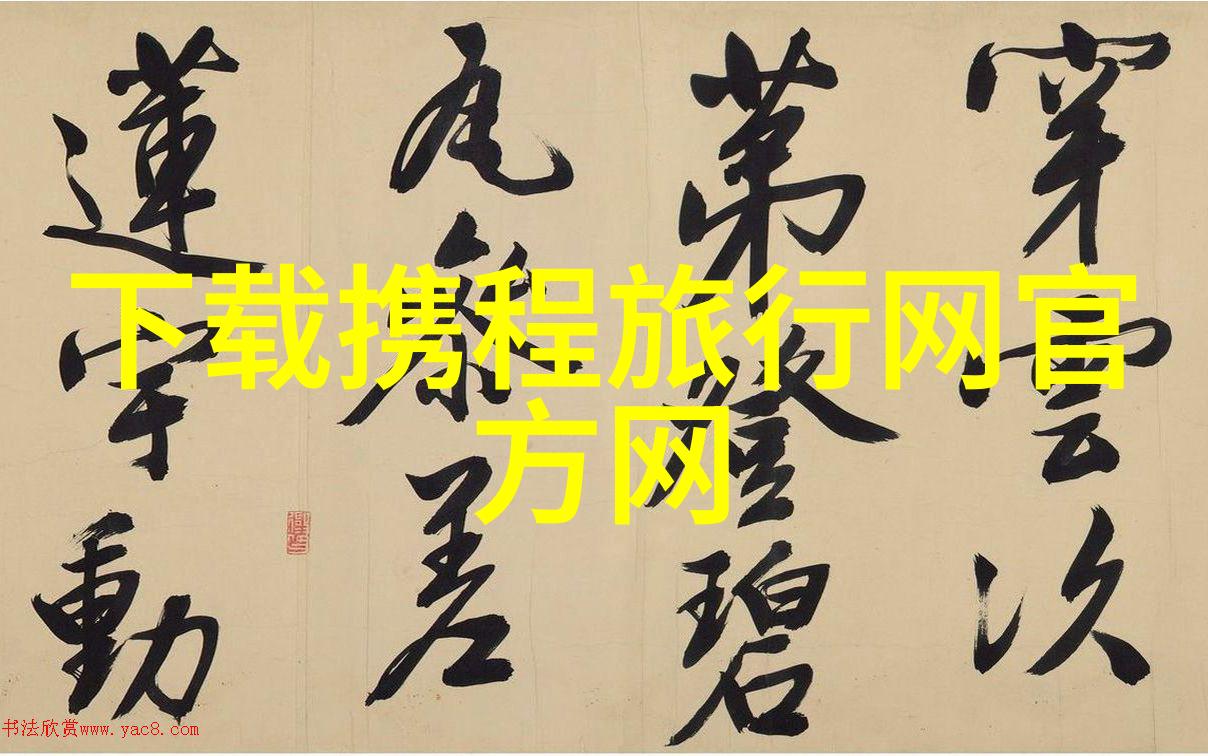 穿雲次
第登碧
瓦參差
蓮宇動
下载携程旅行网官
方网
书法欣赏www.yac8.com